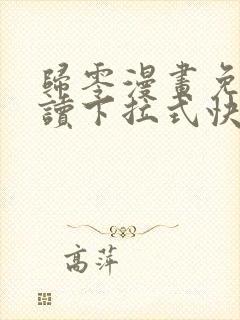 歸零漫畫免
讀下拉式快
高萍